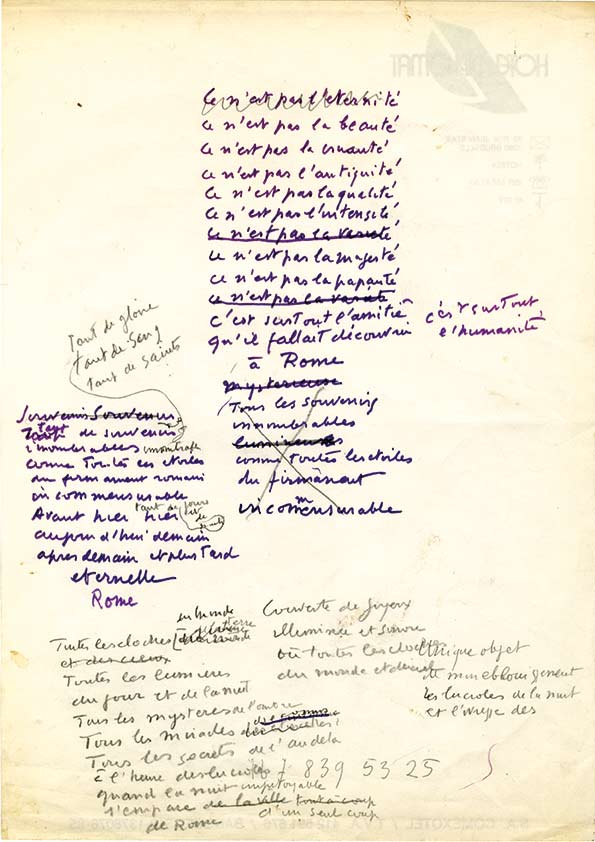 Ce n'est pas l'éternité
Ce n'est pas la beauté
Ce n'est pas la cruauté
Ce n'est pas l'antiquité
Ce n'est pas la qualité
Ce n'est pas l'intensité
Ce n'est pas la variété
Ce n'est pas la majesté
Ce n'est pas la papauté
Ce n'est pas la variété
C'est surtout l'amitié
qu'il fallait découvrir
à Rome
c'est surtout
l'humanité
mysterieuse
Tous les souvenirs
innombrables
comme toutes les étoiles
du firmament
incommensurable
Tant de gloire
tant de sang
tant de saints
Souvenirs Souvenirs
tant de souvenirs
innombrables
comme toutes ces etoiles
au firmament romain
incommensurable
tant de jours
Avant hier hier
aujourd'hui demain
apres demain et plus tard
eternelle
Rome
Toutes les cloches du monde
et des cieux
Toutes les lumieres
du jour et de la nuit
Tous les mysteres de l'ombre
Tous les
Tous les secrets de l'au dela
à l'heure des lucioles
quand la nuit impitoyable
s'empare de la ville tout à coup
de Rome d'un seul coup
Couverte de joyaux
illuminée et sonore
où toutes les cloches
du monde et
Unique objet
de mon eblouissement
les lucioles de la nuit
et l'ivresse des
839 53 25
HOTEL DIPLOMAT